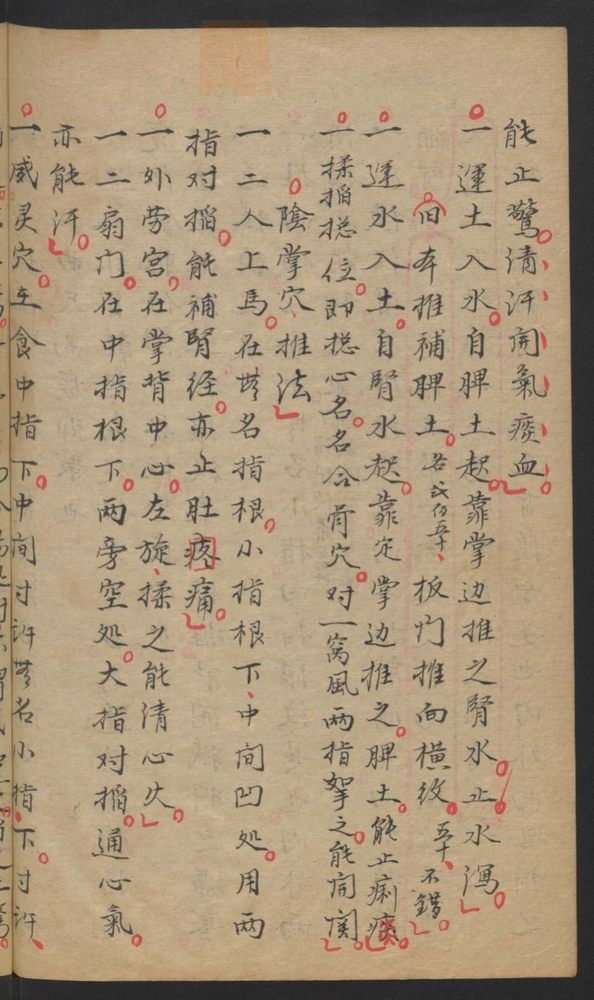 能止驚。清汗、開氣、痰血。
一運土入水。自脾土起。靠掌边推之腎水。止水瀉。
旧本推補脾土。各弍伯五十、板门推向横纹。五十、不錯。
一運水入土。自腎水起。靠定掌边推之。脾土。能止痢痰。
一揉掐捴位即捴心名。名合骨穴。对一窩風兩指拏之。能開関。
陰掌穴推法
一二人上馬。在無名指根。小指根下、中间凹处。用两
指对掐。能補腎经。亦止肚疼痛。
一外劳宫。在掌背中心。左旋揉之能清心火。
一二扇门。在中指根下。两旁空处。大指对掐。通心氣。
亦能汗。
一威灵穴。在食中指下。中间寸许。無名小指下。寸许、